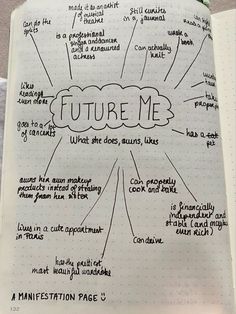 can do the
splits
made it as an artist
of musical
theatre
is a professional
singer and dancer
and a renowned
actress
Still writes
in a journal
Can actually
knit
book
likes
reading
even more
goes to a lot
of concerts
FUTURE ME
What she does, owns, likes
take
proper
has a
pet
owns her own makeup
products instead of stealing
them from her sister
can properly
cook and bake
is financially
independent and
stable (and maybe
even rich)
lives in a cute appartment
in Paris
can drive
has the prettiest
most beautiful wardrobe
A MANIFESTATION PAGE
132